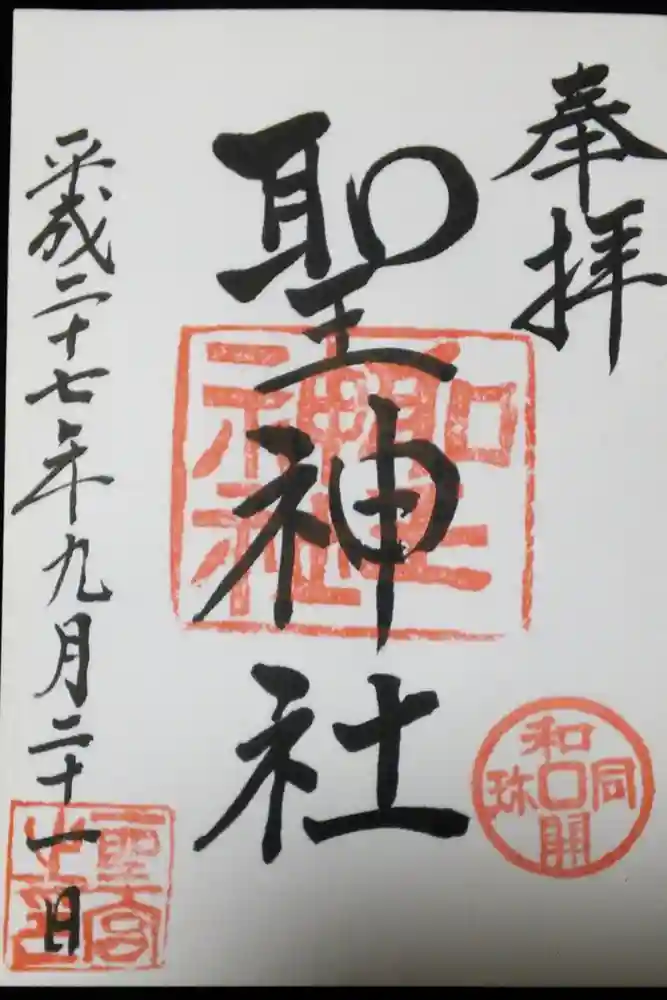 奉拝
聖神社
平成二十七年九月二十一日
聖神社
和同開珎
聖宮之印